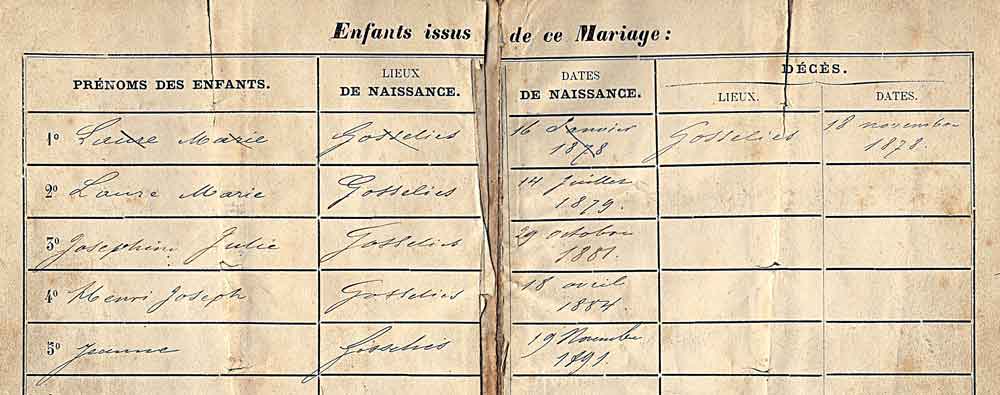 Enfants issus de ce Mariage:
PRÉNOMS DES ENFANTS.
LIEUX
DE NAISSANCE.
DATES
DE NAISSANCE.
DÉCÈS.
LIEUX.
DATES.
1º Laure Marie Gosselies 16 Janvier 1878 Gosselies 18 novembre 1878.
2º Laure Marie Gosselies 14 Juillet 1879.
3º Joséphine Julie Gosselies 29 octobre 1881.
4º Henri Joseph Gosselies 18 avril 1884.
5º Jeanne Gosselies 19 Novembre 1891.